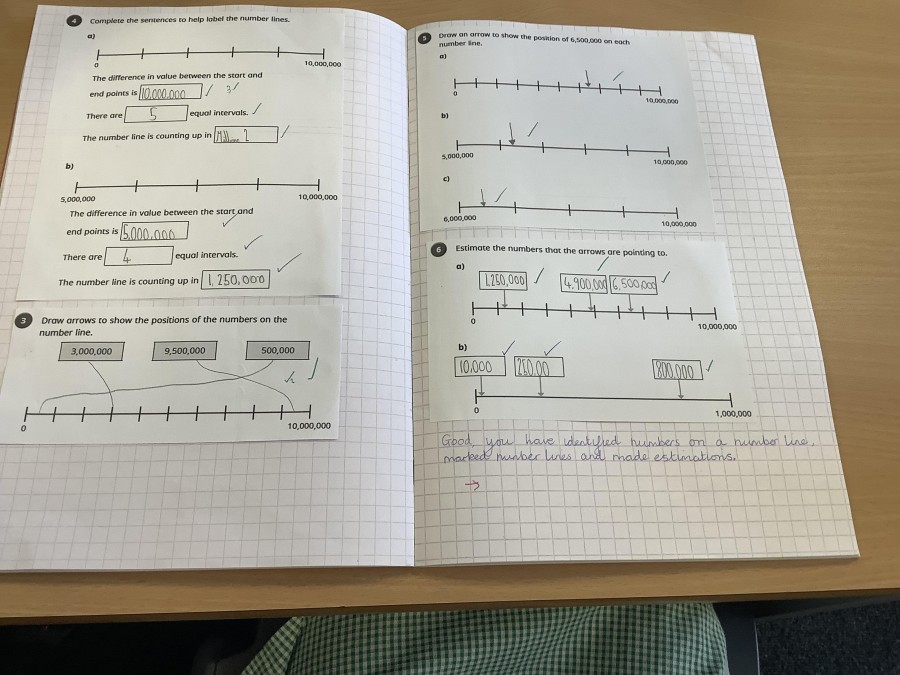 4 Complete the sentences to help label the number lines.
a)
0 10,000,000
The difference in value between the start and
end points is 10,000,000
There are 5 equal intervals.
The number line is counting up in 2
b)
5,000,000 10,000,000
The difference in value between the start and
end points is 5,000,000
There are 4 equal intervals.
The number line is counting up in 1,250,000
3 Draw arrows to show the positions of the numbers on the
number line.
3,000,000 9,500,000 500,000
0 10,000,000
5 Draw an arrow to show the position of 6,500,000 on each
number line.
a)
0 10,000,000
b)
5,000,000 10,000,000
c)
6,000,000 10,000,000
6 Estimate the numbers that the arrows are pointing to.
a)
1,250,000 4,900,000 6,500,000
0 10,000,000
b)
10,000 250,00 800,000
0 1,000,000
Good, you have identified numbers on a number line,
marked number lines and made estimations.